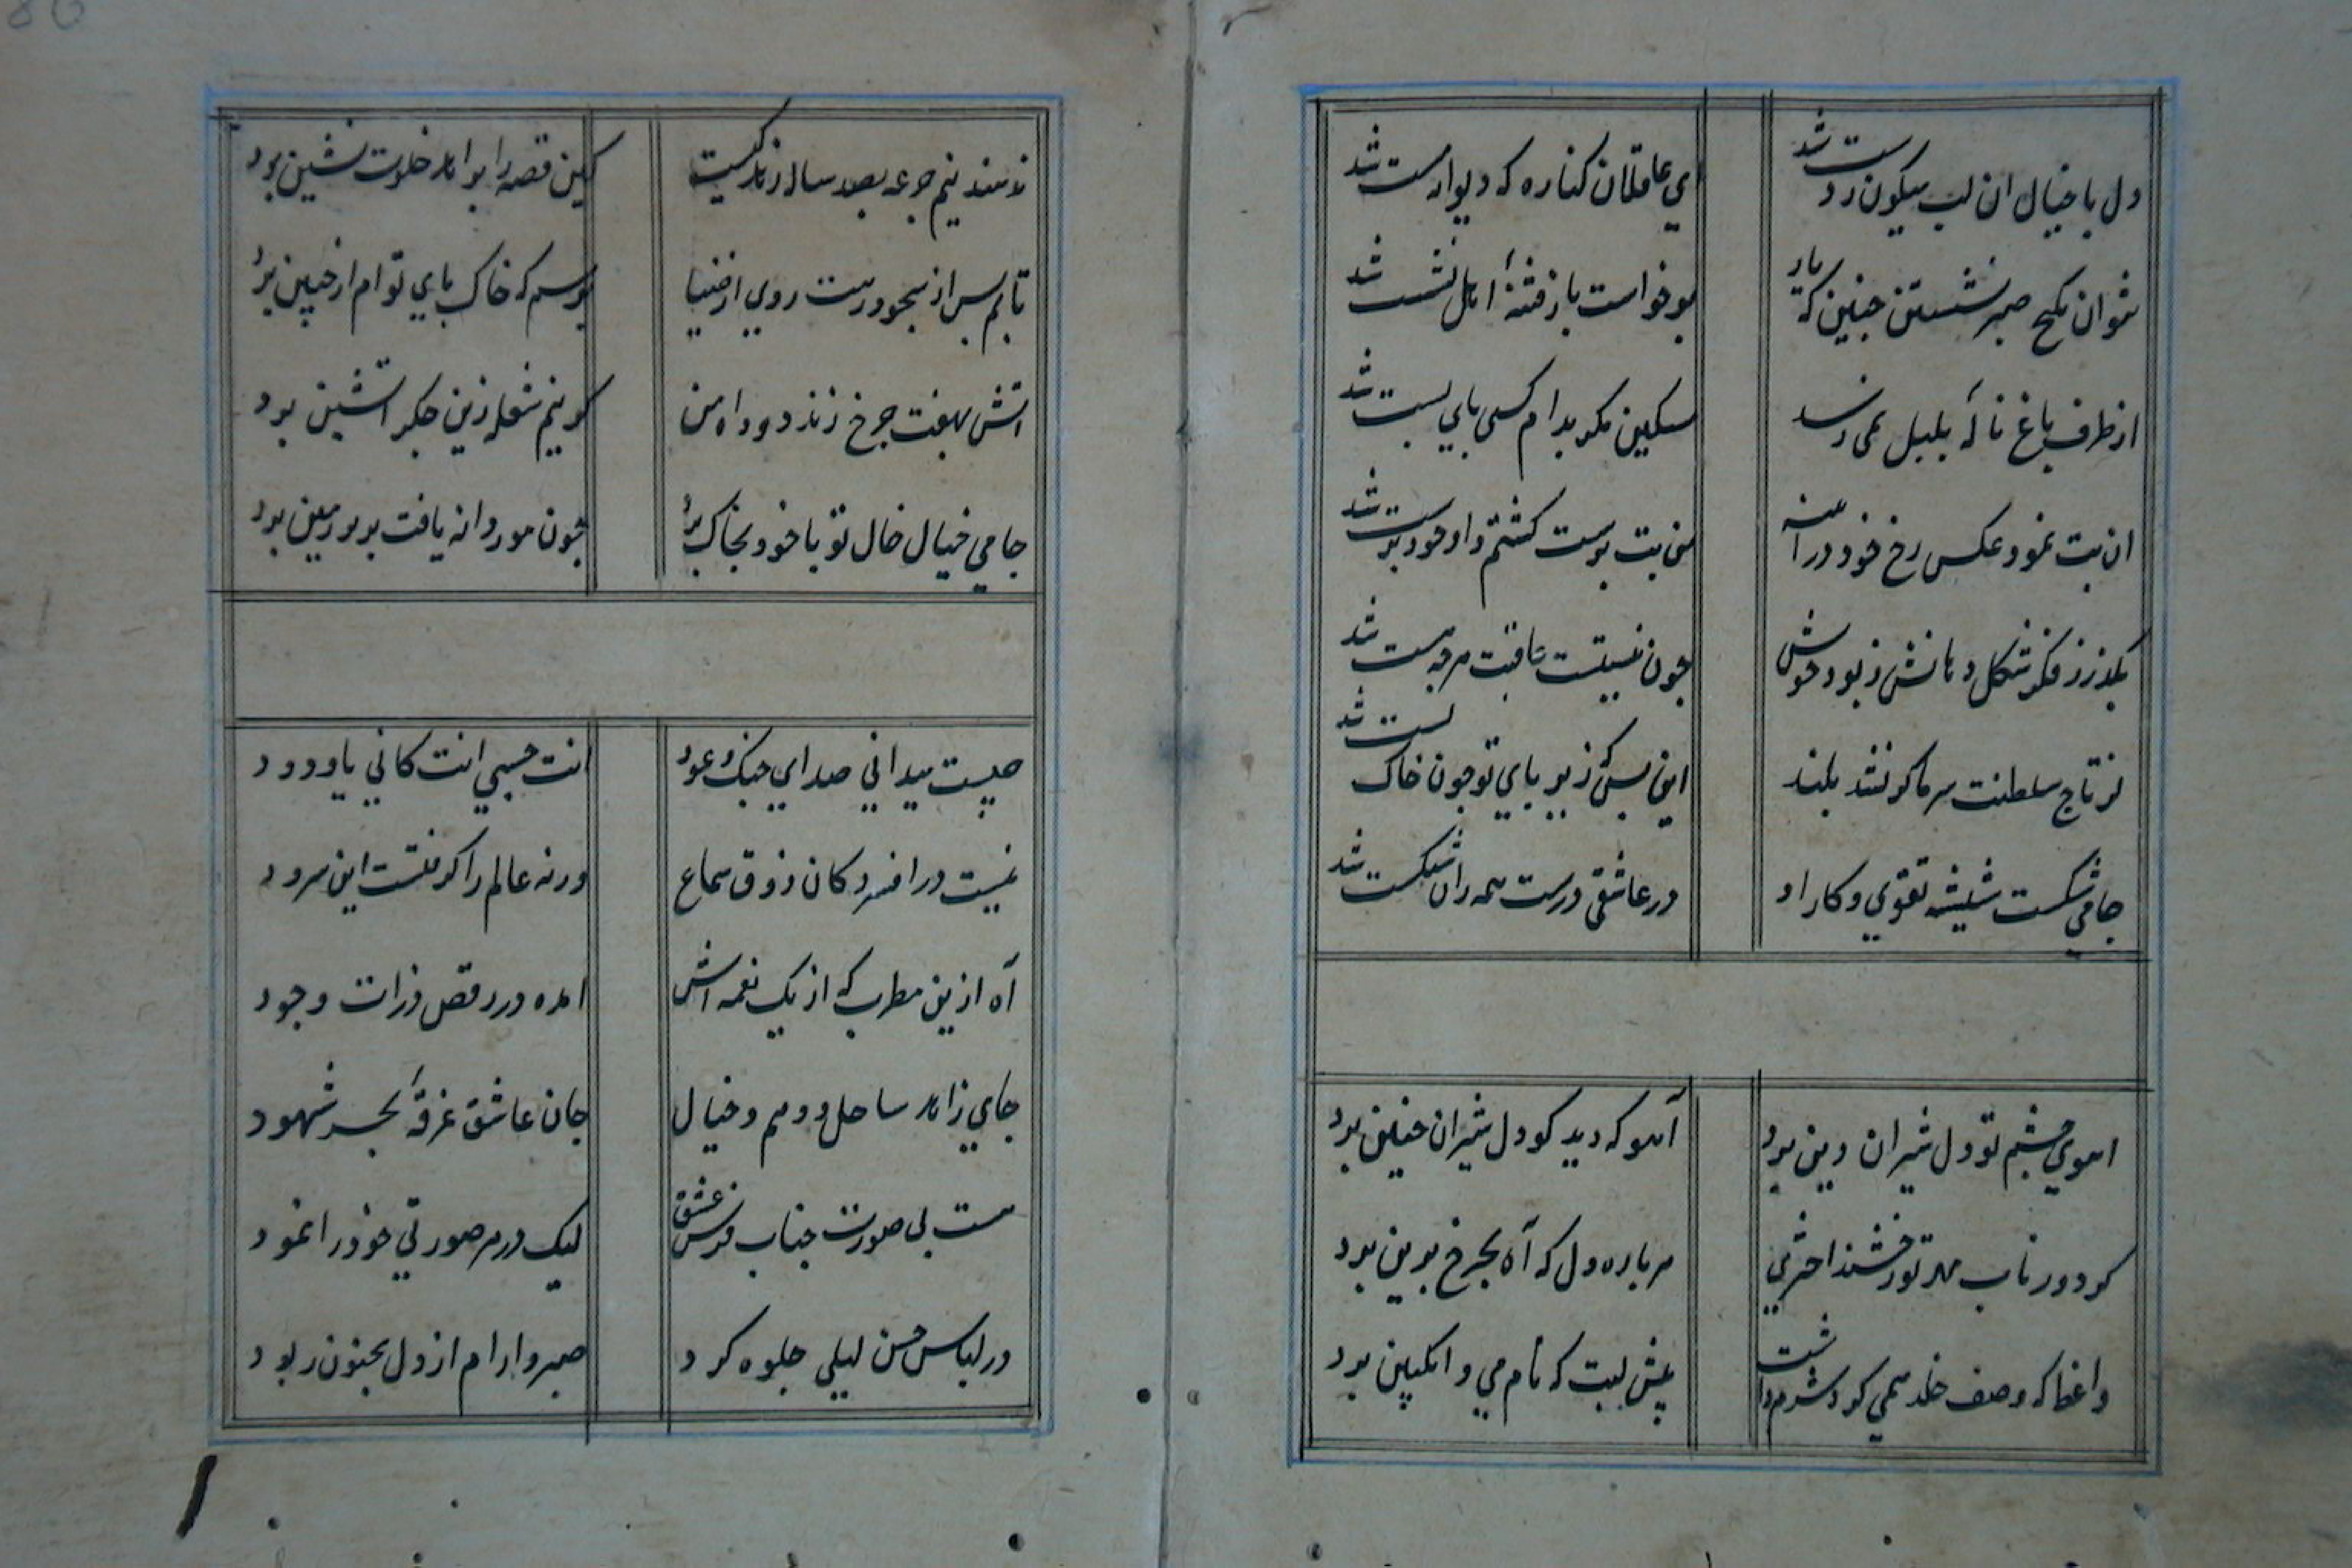 دل با خیال ان لب میکون ز دست شد
ای عاقلان کناره که دیوانه مست شد
نتوان بکنج صبر نشستن چنین که یار
برخواست باز فتنهٔ اهل نشست شد
از طرف باغ نالهٔ بلبل نمی رسد
مسکین مکر بدام کسی پای بست شد
ان بت نمود عکس رخ خود در آینه
من بت پرست کشتم و او خود پرست شد
بکذر ز فکر شکل دهانش ز بود خویش
چون نیستیت عاقبت هرچه هست شد
از تاج سلطنت سر ما کر نشد بلند
این بس که زیر پای تو چون خاک پست شد
جامی شکست شیشه تقوی و کار او
در عاشقی درست همه زان شکست شد
اهوی چشم تو دل شیران دین برد
آهو که دید کو دل شیران چنین برد
کردد ز تاب مهر تو رخشنده اختری
هر پاره دل که آه بچرخ برین برد
واعظ که وصف خلد همی کرد شرم داشت
پیش لبت که نام می و انکبین برد
ندهند نیم جرعه بصد ساله زهد کیست
کین قصه را بزاهد خلوت نشین برد
تابم پس از سجود رهت روی از ضیا
ترسم که خاک پای تو ام از جبین برد
اتش بهفت چرخ زند دود اه من
کر نیم شعله زین جکر اتشین برد
جامی خیال خال تو با خود بخاک برد
چون مور دانه یافت بزیر زمین برد
چیست میدانی صدای چنک و عود
انت حسبی انت کافی یا ودود
نیست در افسردکان ذوق سماع
ورنه عالم را کرفتست این سرود
آه ازین مطرب که از یک نغمه اش
امده در رقص ذرات وجود
جای زاهد ساحل و وهم و خیال
جان عاشق غرقهٔ بحر شهود
هست بی صورت جناب قدس عشق
لیک در هر صورتی خود را نمود
در لباس حسن لیلی جلوه کرد
صبر و ارام از دل مجنون ربود